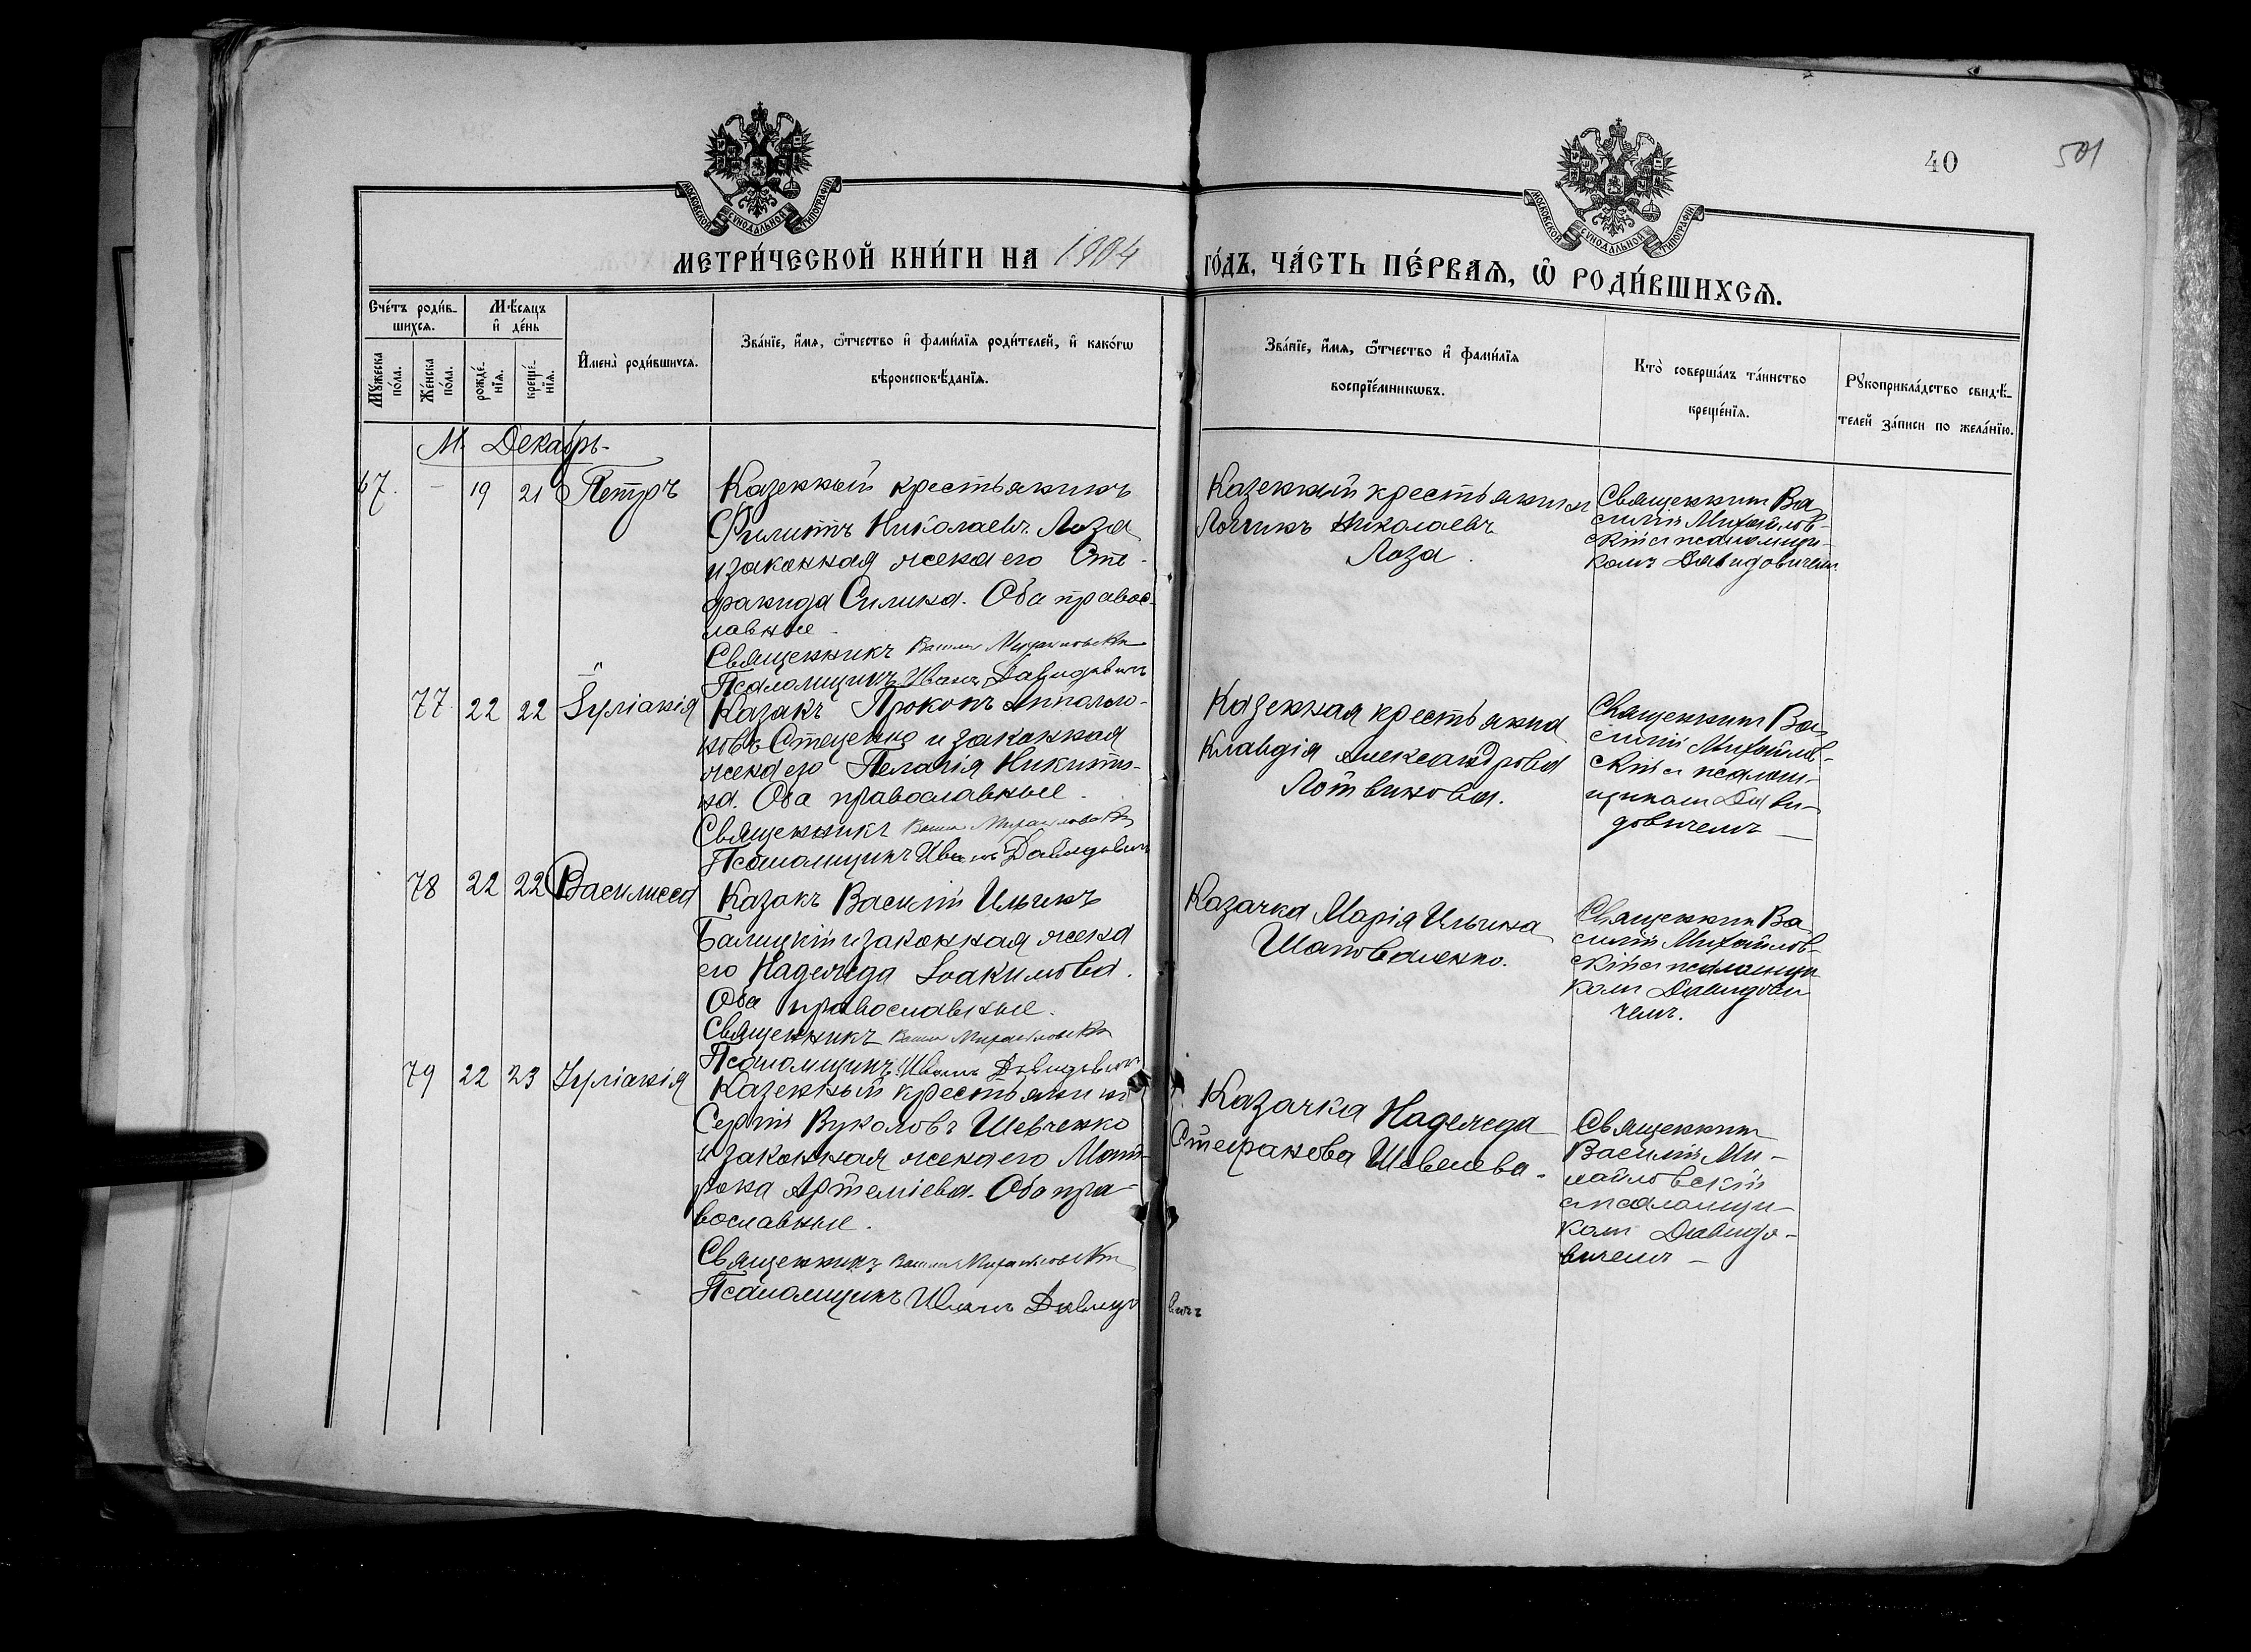 40
501
МОСКОВСКОЙ СУНОДАЛЬНОЙ ТИПОГРАФІИ
МОСКОВСКОЙ СУНОДАЛЬНОЙ ТИПОГРАФІИ
МЕТРИ́ЧЕСКОЙ КНИ́ГИ НА 1904 ГО́ДЪ, ЧА́СТЬ ПЕ́РВАѦ, Ѡ҆ РОДИ́ВШИХСѦ.
Сче́тъ роди́в-
шихсѧ.
Мѣ́сѧцъ
и҆ де́нь
Мꙋ́жеска
по́ла.
Же́нска
по́ла.
рожде́-
нїѧ.
креще́-
нїѧ.
И҆мена̀ роди́вшихсѧ.
Зва́нїе, и҆́мѧ, ѻ҆́тчество и҆ фами́лїѧ роди́телей, и҆ како́гѡ
вѣроисповѣ́данїѧ.
Зва́нїе, и҆́мѧ, ѻ҆́тчество и҆ фами́лїѧ
воспрїе́мникѡвъ.
Кто̀ соверша́лъ та́инство
креще́нїѧ.
Рꙋкоприкла́дство свидѣ́-
телей за́писи по жела́нїю.
М. Декабрь-
67. - 19 21 Петръ
Казенный крестьянинъ
Филиппъ Николаевъ Лоза
и законная жена его Сте-
фанида Силина. Оба правос-
лавные.
Священникъ Василій Михайловскій
Псаломщикъ Иванъ Давидовичъ
Казенный крестьянин
Логгинъ Николаевъ
Лоза.
Священник Ва
силій Михайлов-
скій с псаломщи-
комъ Давидовичем.
77 22 22 Іуліанія
Казакъ Прокопъ Апполло-
новъ Стеценко и законная
жена его Пелагія Никити-
на. Оба православные.
Священникъ Василій Михайловскій
Псаломщикъ Иванъ Давидовичъ
Казенная крестьянка
Клавдія Александрова
Логвинова.
Священник Ва
силій Михайлов-
скій с псалом-
щиком Дави-
довичемъ
78 22 22 Василисса
Казакъ Василій Ильинъ
Балицкій и законная жена
его Надежда Іоакимова.
Оба православные.
Священникъ Василій Михайловскій
Псаломщикъ Иванъ Давидовичъ
Казачка Марія Ильина
Шаповаленко.
Священник Ва
силій Михайлов-
скій с псаломщи
ком Давидови
чемъ.
79 22 23 Іуліанія
Казенный крестьянинъ
Сергій Вуколовъ Шевченко
и законная жена его Мат-
рона Артеміева. Оба пра-
вославные.
Священникъ Василій Михайловскій
Псаломщикъ Иванъ Давидовичъ
Казачка Надежда
Стефанова Шевелева.
Священник
Василій Ми-
хайловскій
с псаломщи-
ком Давидо-
вичемъ